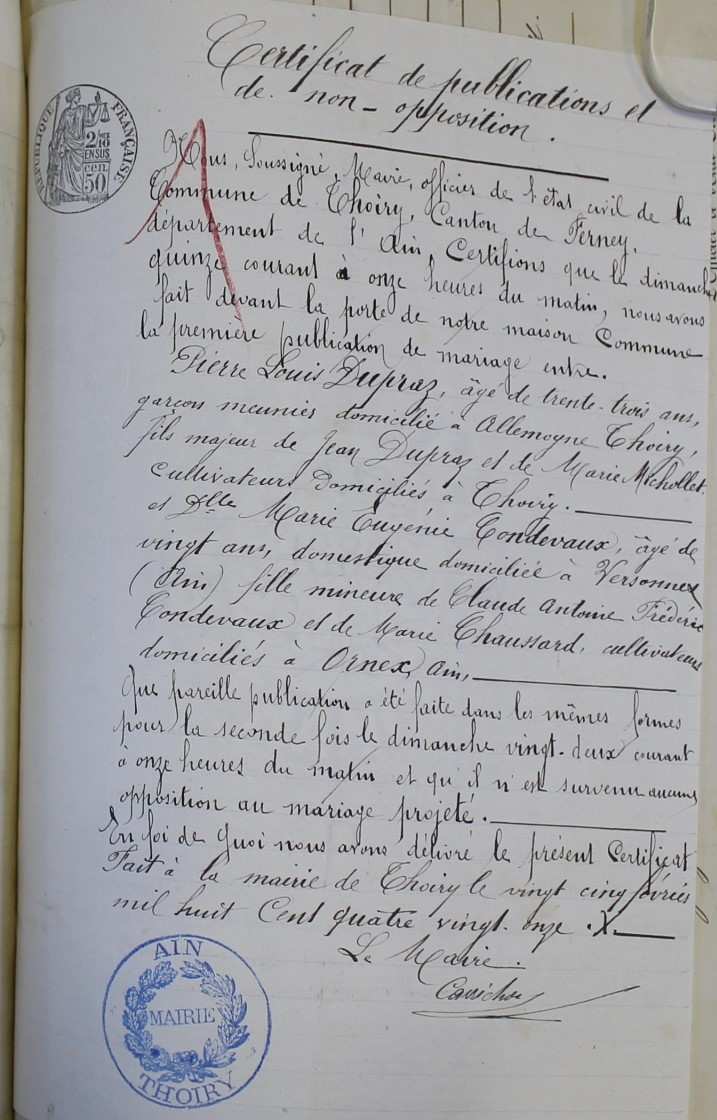 Certificat de publications et
de non-opposition.
RÉPUBLIQUE FRANÇAISE
2/10
EN SUS
50
Nous, Soussigné, Maire, officier de l'état civil de la
Commune de Thoiry, Canton de Ferney,
département de l'Ain, Certifions que le dimanche
quinze courant à onze heures du matin, nous avons
fait devant la porte de notre maison Commune
la première publication de mariage entre.
Pierre Louis Dupraz, âgé de trente-trois ans,
garçon meunier domicilié à Allemogne Thoiry,
fils majeur de Jean Dupraz et de Marie Michollet
cultivateurs domiciliés à Thoiry.
et Dlle Marie Eugénie Tondevaux, âgé de
vingt ans, domestique domiciliée à Versonnex
(Ain) fille mineure de Claude Antoine Frédéric
Tondevaux et de Marie Chaussard, cultivateurs
domiciliés à Ornex, Ain,
Que pareille publication a été faite dans les mêmes formes
pour la seconde fois le dimanche vingt-deux courant
à onze heures du matin et qu'il n'est survenu aucune
opposition au mariage projeté.
En foi de quoi nous avons délivré le présent Certificat
Fait à la mairie de Thoiry le vingt cinq février
mil huit Cent quatre vingt-onze.
Le Maire.
AIN
MAIRIE
THOIRY